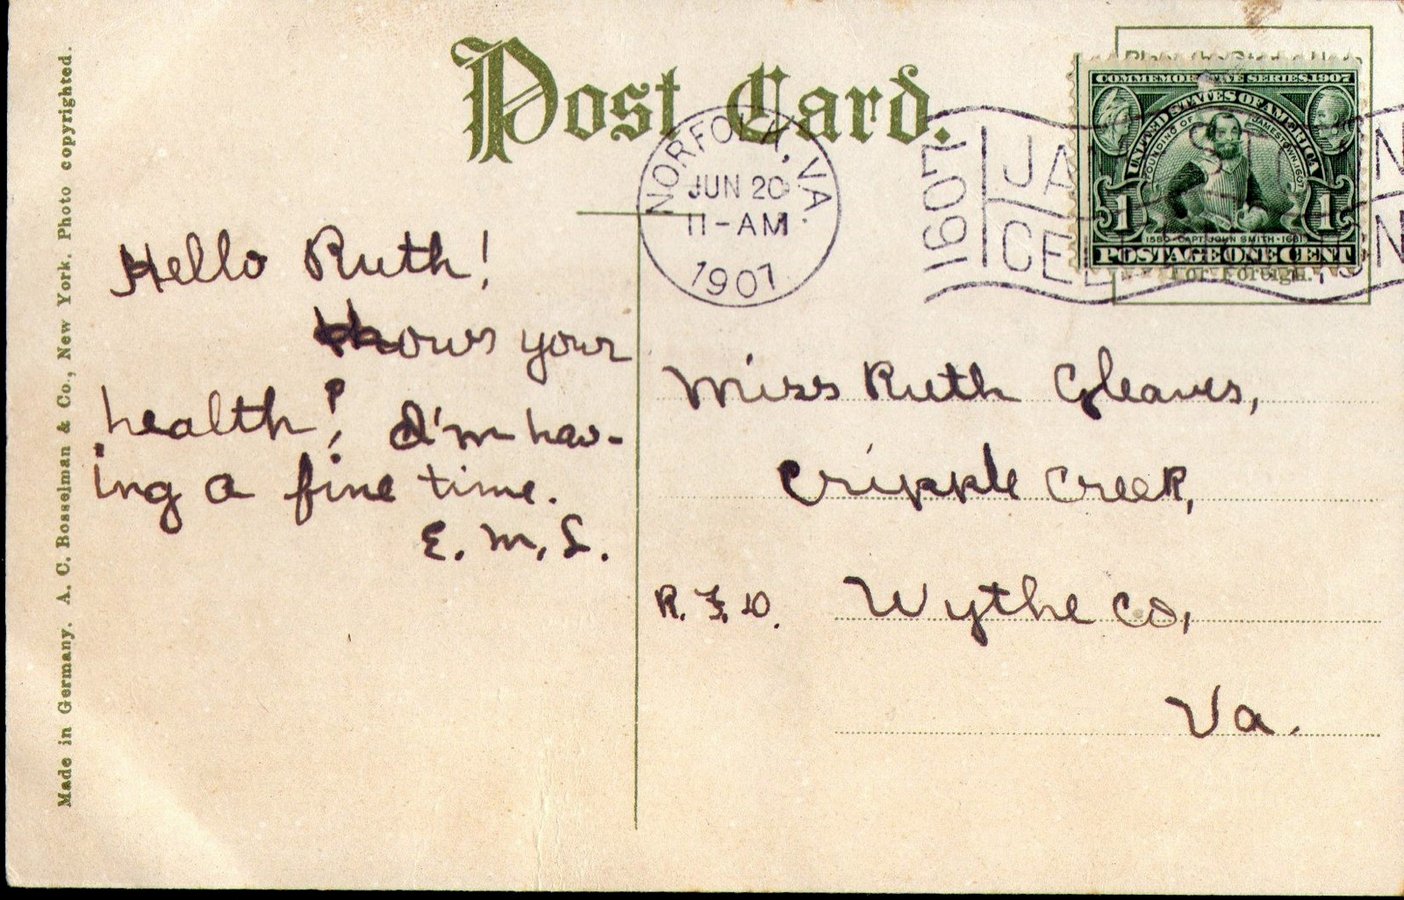 Made in Germany. A. C. Bosselman & Co., New York. Photo copyrighted.
Post Card.
NORFOLK, VA.
JUN 20
11-AM
1907
1607
JA
CE
COMMEMORATIVE SERIES 1907
UNITED STATES OF AMERICA
FOUNDING OF JAMESTOWN 1607
1 1
1580 · CAPT JOHN SMITH · 1631
POSTAGE ONE CENT
For Foreign.
Hello Ruth!
hows your
health? I'm hav-
ing a fine time.
E. M. S.
Miss Ruth Gleaves,
Cripple Creek,
R. F. D. Wythe Co,
Va.